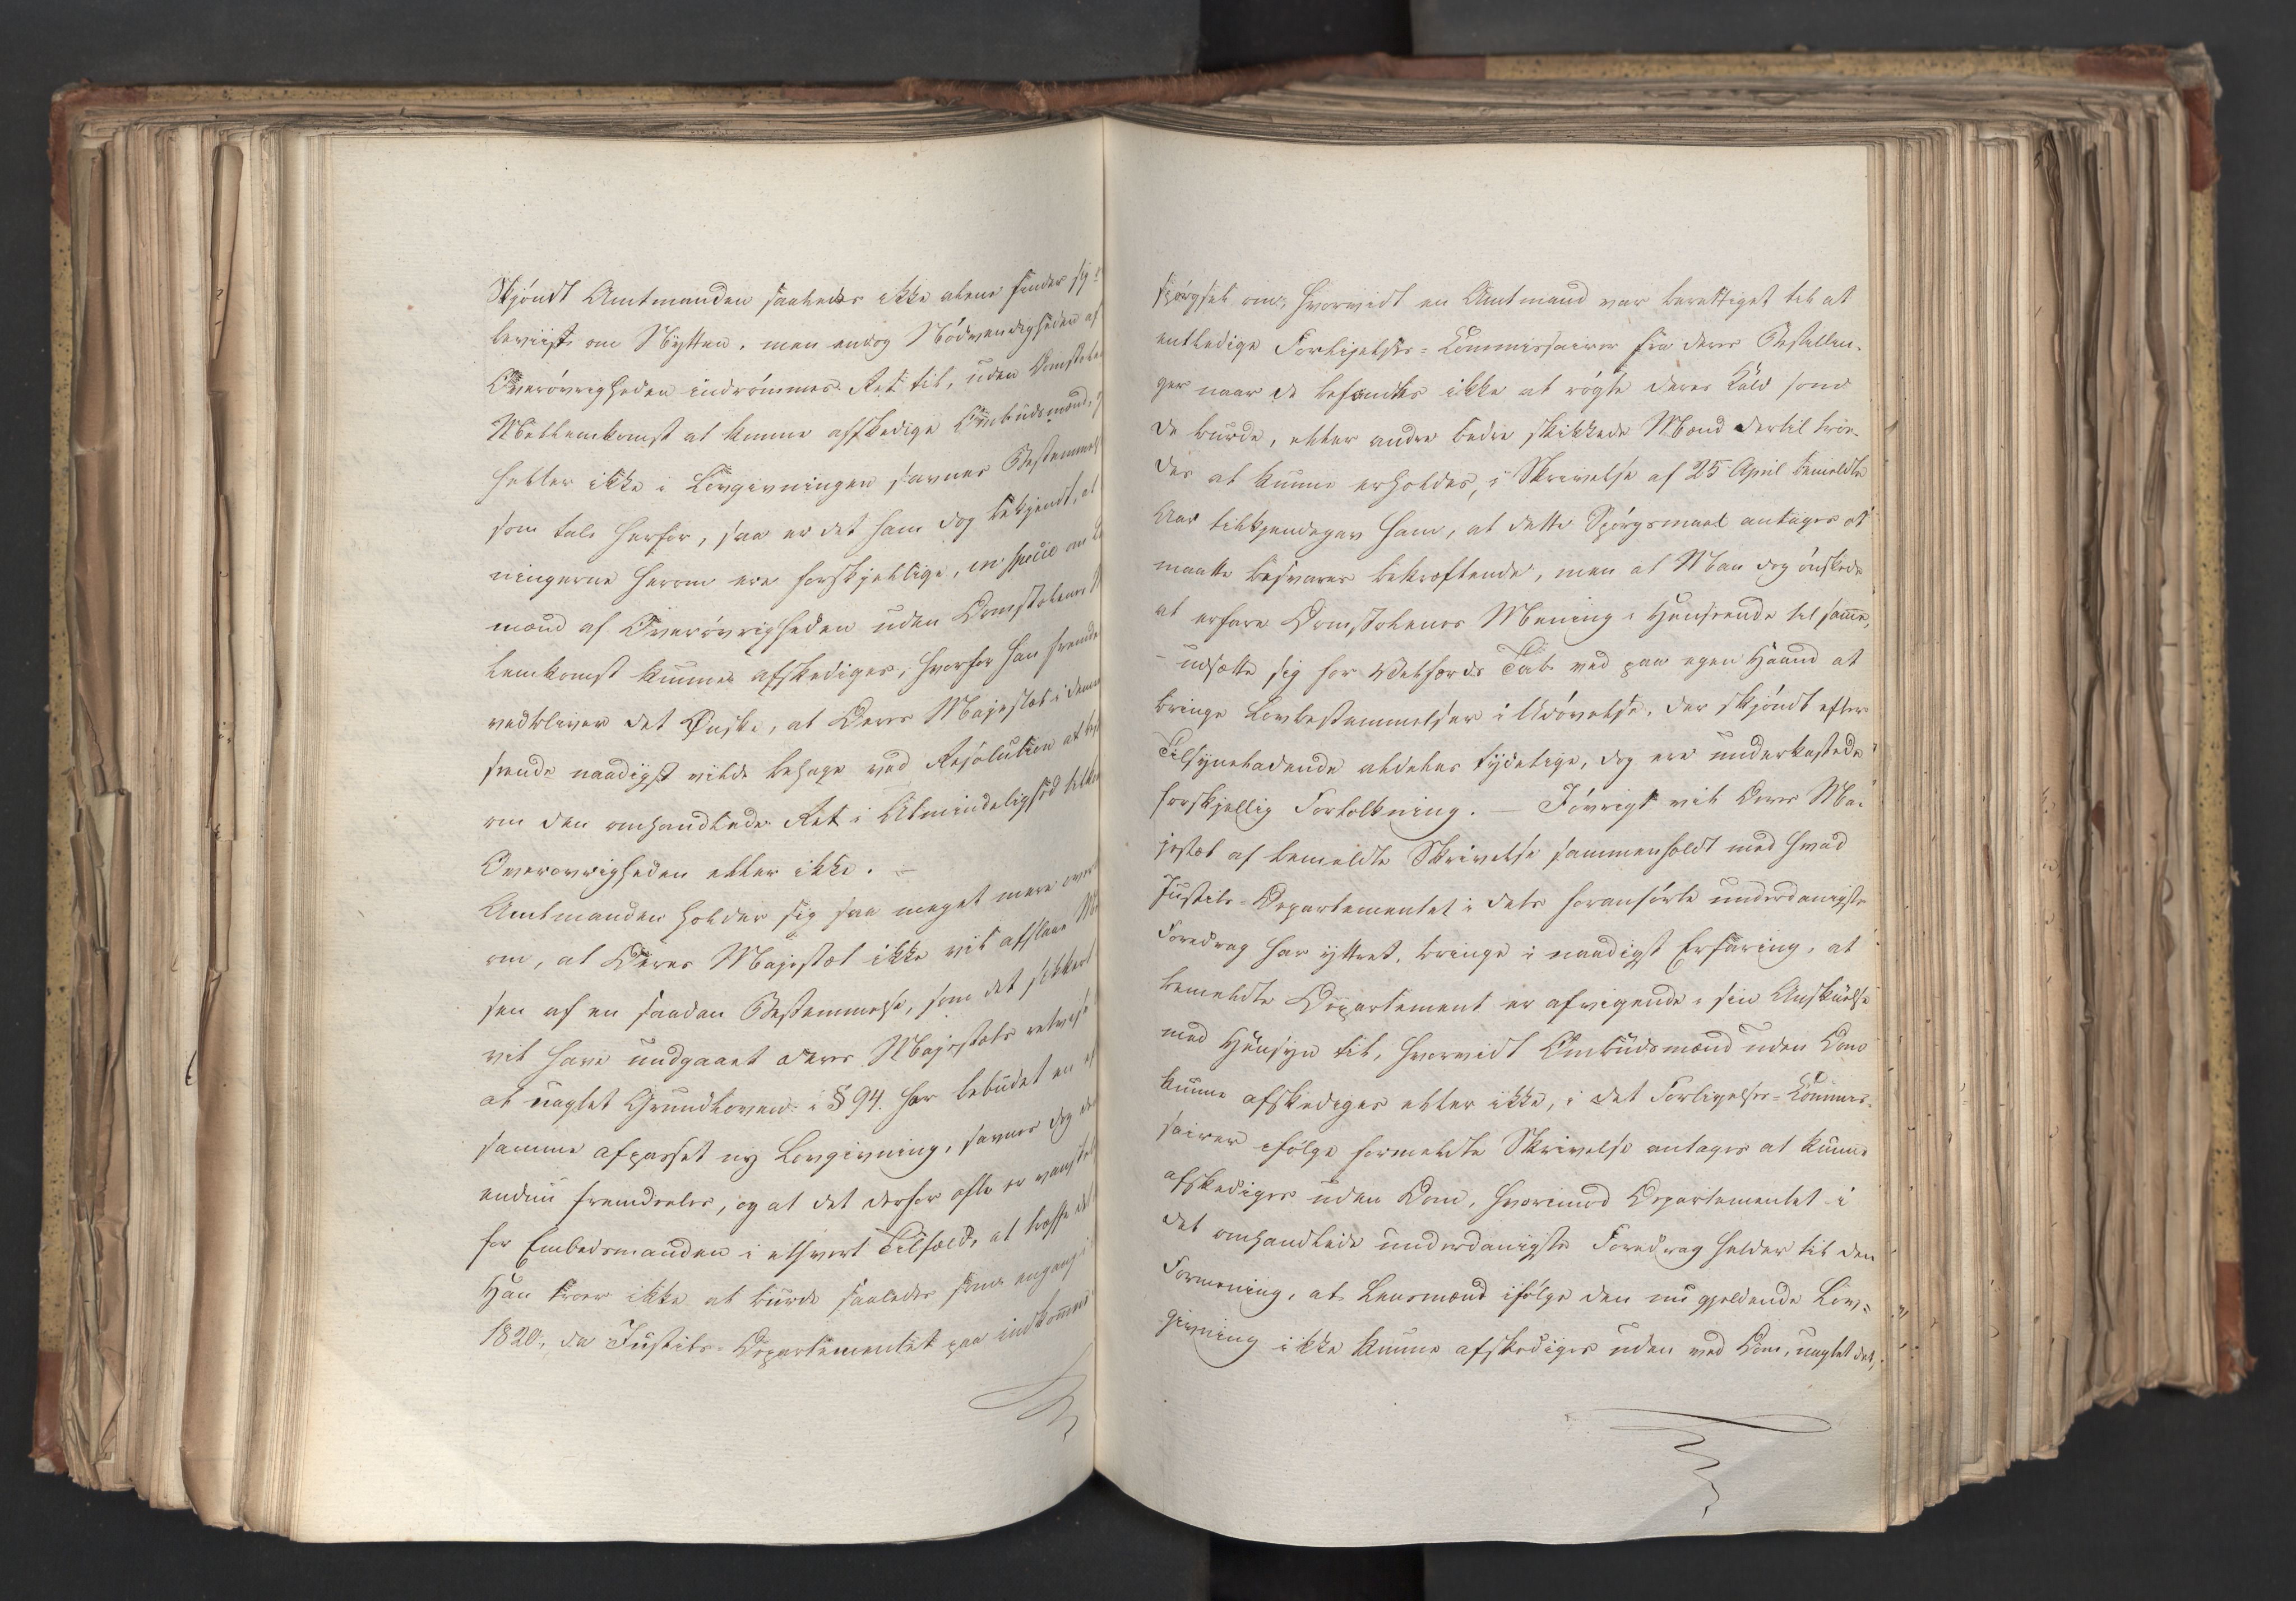 Skjøndt Amtmanden saaledes ikke alene finder sig
beviist om Nytten, men endog Nødvendigheden af
Overøvrigheden indrømmes Ret til, uden Domstolen
Mellemkomst at kunne afskedige Ombudsmænd,
heller ikke i Lovgivningen savner Bestemmel
som tale herfor, saa er det ham dog bekjendt, at
ningerne herom ere forskjellige, in specie om
mænd af Overøvrigheden uden Domstolenes
lemkomst kunne afskediges, hvorfor han
vedbliver det Ønske, at Deres Majestæt i denne
seende naadigst vilde behage ved Resolution at
om den omhandlede Ret i Almindelighed
Overøvrigheden eller ikke. –
Amtmanden holder sig saa meget mere
om, at Deres Majestæt ikke vil afslaae
sen af en saadan Bestemmelse, som det sikkert
vil have undgaaet Deres Majestæts
at uagtet Grundloven i § 94. har bebudet en
samme afpasset ny Lovgivning, savnes dog
endnu fremdeles, og at det derfor ofte er
for Embedsmanden i ethvert Tilfælde, at træffe
Han troer ikke at burde saaledes som engang
1820, da Justits-Departementet paa indkomme
spørgsel om, hvorvidt en Amtmand var berettiget til at
entledige Forligelses-Commissairer fra deres Bestillin-
ger naar de befandtes ikke at røgte deres Kald som
de burde, eller andre bedre skikkede Mænd dertil troe-
des at kunne erholdes, i Skrivelse af 25 April bemeldte
Aar tilkjendegav ham, at dette Spørgsmaal antages at
maatte besvares bekræftende, men at Man dog ønskede
at erfare Domstolenes Mening i Henseende til samme,
– udsætte sig for Velfærds Tab ved paa egen Haand at
bringe Lovbestemmelser i Udøvelse, der skjøndt efter
Tilsyneladende aldeles tydelige, dog ere underkastede
forskjellig Fortolkning. – Iøvrigt vil Deres Ma-
jestæt af bemeldte Skrivelse sammenholdt med hvad
Justits-Departementet i dets foranførte underdanigste
Foredrag har yttret, bringe i naadigst Erfaring, at
bemeldte Departement er afvigende i sin Anskuelse
med Hensyn til, hvorvidt Ombudsmænd uden Dom
kunne afskediges eller ikke, i det Forligelses-Commis-
sairer ifølge formeldte Skrivelse antages at kunne
afskediges uden Dom, hvorimod Departementet i
det omhandlede underdanigste Foredrag helder til den
Formening, at Lensmænd ifølge den nu gjeldende Lov-
givning ikke kunne afskediges uden ved Dom, uagtet det,